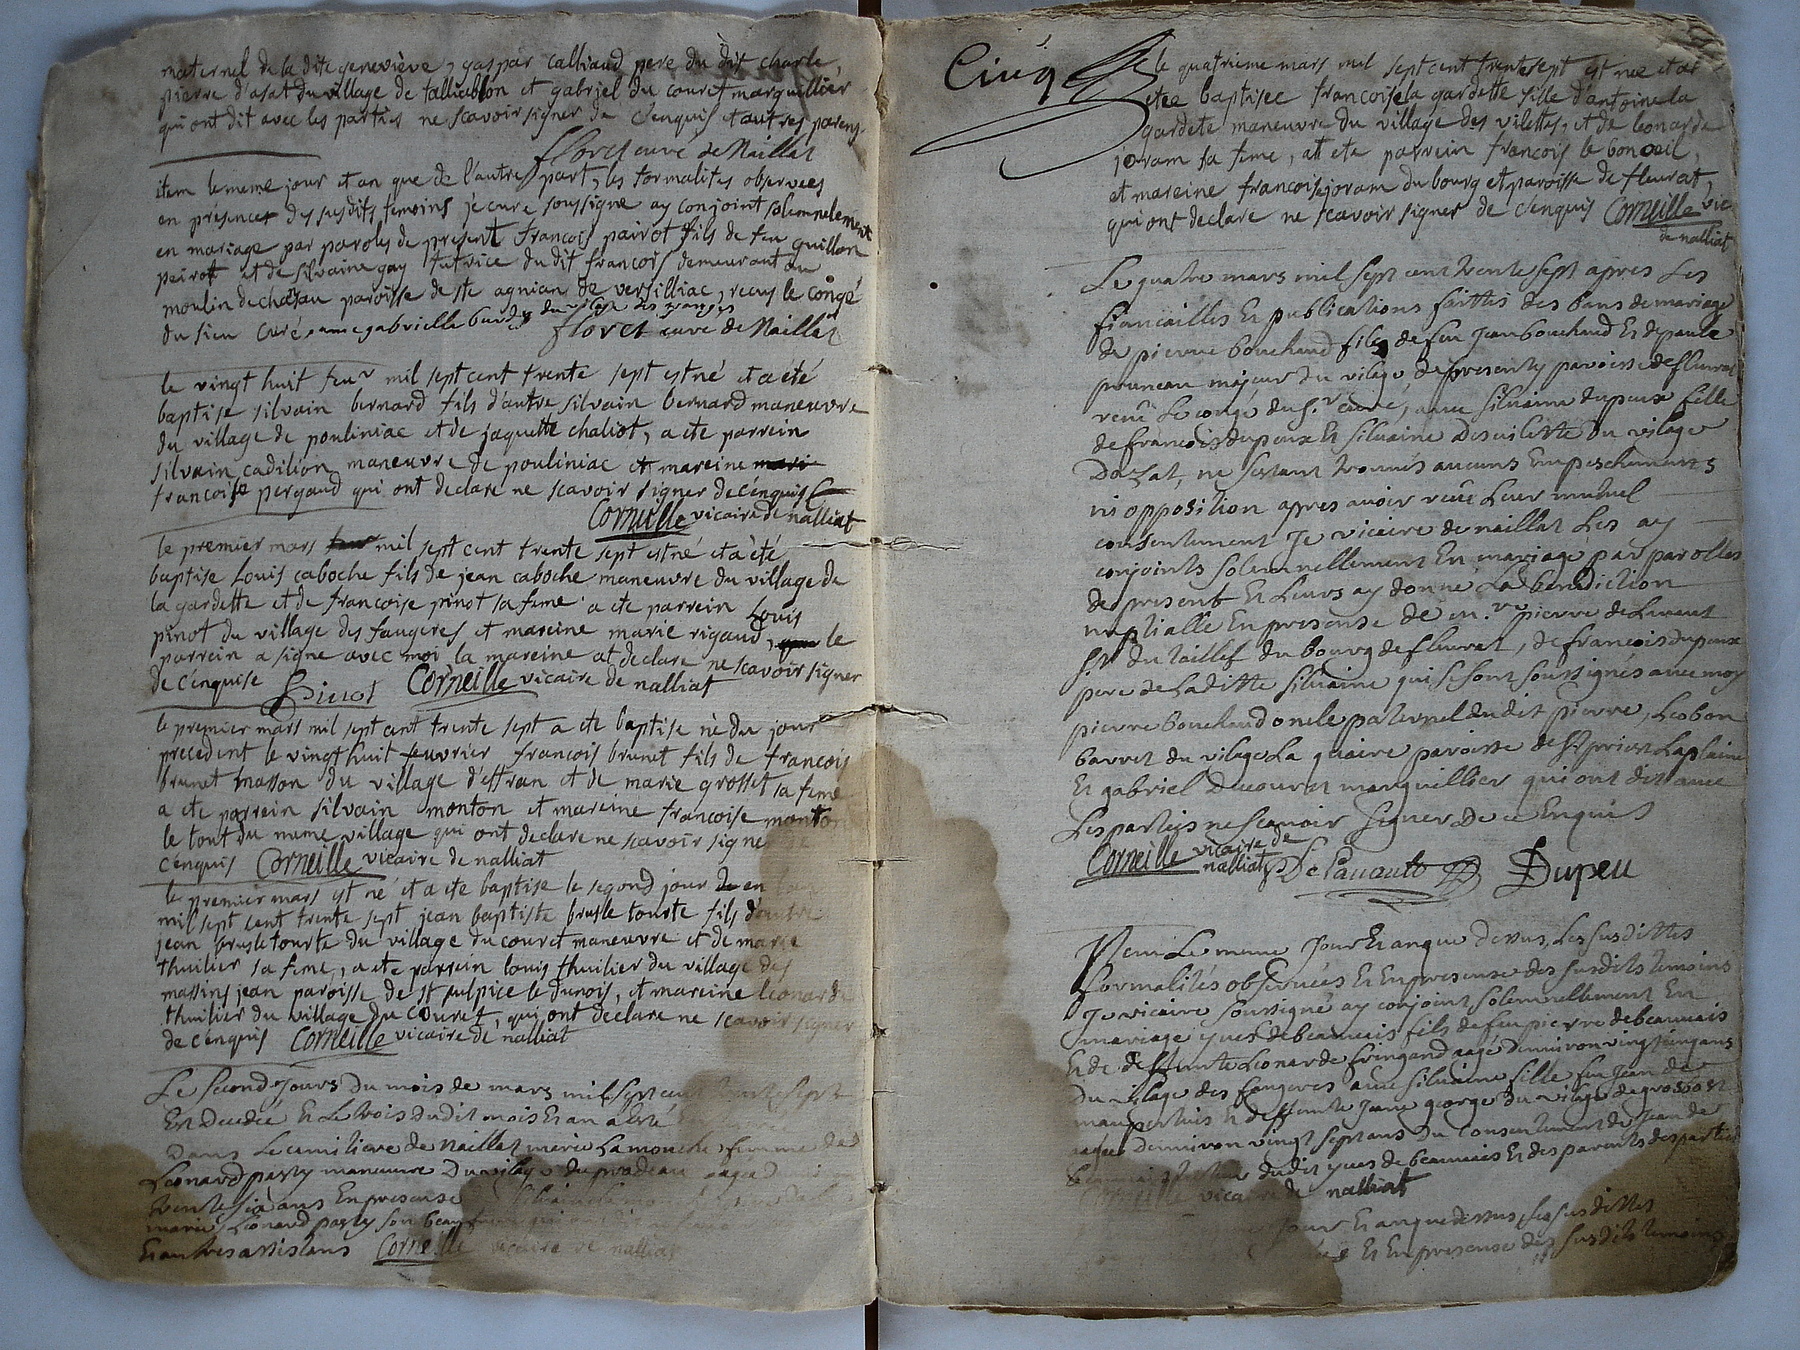 maternel de la dite geneviève, gaspar calliaud pere du dit charle,
pierre d'asat du village de talliablon et gabriel du couret marguillier
qui ont dit avec les parties ne scavoir signer de cenquis et autres parens
floret curé de Naillat
item le meme jour et an que de l'autre part, les formalites observées
en présence des susdits temoins je curé soussigne ay conjoint solemnelement
en mariage par paroles de présent francois pairot fils de feu guillon
peirot et de silvaine gay tutrice du dit francois demeurant au
moulin de chasau paroisse de ste agnian de versilliac, recus le congé
du sieu curé avec gabrielle
floret curé de Naillat
le vingt huit feur mil sept cent trente sept est né et a été
baptise silvain bernard fils d'autre silvain bernard maneuvre
du village de pouliniac et de jaquette chaliot, a ete parrein
silvain cadilion maneuvre de pouliniac et mareine mari
francoise pergaud qui ont declare ne scavoir signer de cenquis
Corneille vicaire de nalliat
le premier mars mil sept cent trente sept est né et a été
baptise Louis caboche fils de jean caboche maneuvre du village de
la gardette et de francoise pinot sa feme a ete parrein Louis
pinot du village des faugeres et mareine marie rigaud, que le
parrein a signe avec moi la mareine at declaré ne scavoir signer
de cenquise Pinot Corneille vicaire de nalliat
le premier mars mil sept cent trente sept a ete baptise né du jour
precedent le vingt huit feuvrier francois brunet fils de francois
brunet masson du village d'effran et de marie grosset sa feme
a ete parrein silvain monton et mareine francoise monton
le tout du meme village qui ont declare ne scavoir signe
cenquis Corneille vicaire de nalliat
le premier mars est né et a ete baptise le segond jour de en
mil sept cent trente sept jean baptiste brusle tourte fils d'autre
jean brusletourte du village du couret maneuvre et de marie
thuilier sa feme, a ete parrein louis thuilier du village des
massins jean paroisse de st sulpice le dunois, et mareine leonarde
thuilier du village du couret, qui ont declare ne scavoir signer
de cenquis Corneille vicaire de nalliat
Le second Jours du mois de mars mil sept cent trente sept
Est decedée Et le trois dudit mois Et an a Esté
Dans Le cimitiere de Naillat marie Lamouche femme de
Leonard pasty maneuvre Du vilage du pradeau aagée D
trente six ans En presence
marie, Leonard pasty son beau frere
Et autres assistans Corneille vicaire de nalliat
Cinq
le quatrieme mars mil sept cent trente sept est nee et at
etee baptisee francoise la gardette fille d'antoine la
gardete maneuvre du village des vilettes, et de leonarde
joram sa feme, at ete parrein francois le bonoeil,
et mareine francoise joram du bourg et paroisse de fleurat,
qui ont declare ne scavoir signer de cenquis Corneille vic
de nalliat
Le quatre mars mil sept cent trente sept apres Les
fiancailles Et publications faittes des bans de mariage
de pierre bouchaud fils de feu Jean bouchaud Et de paule
pruneau majeur du vilage de presenty paroisse de fleurat
receu Le congé du Sr. curé, avec silvaine dupeux fille
de francois dupeux Et silvaine Desvilette du vilage
Dazat, ne sestant trouvés aucuns Empeschements
ni opposition apres avoir receu Leur mutuel
consentement Je vicaire de naillat Les ay
conjoints solemnellement En mariage par parolles
de present Et Leurs ay donné La benediction
nuptialle En presense de mr. pierre de
Sr. du taillef du bourg de fleurat, de francois dupeux
pere de La ditte silvaine qui se sont soussignés avec moy
pierre bouchaud oncle paternel dudit pierre, Lesbon
barret du vilage La quaire paroisse de St priest La plaine
Et gabriel Ducouret marguillier qui ont dit avec
Les parties ne scavoir signer De ce Enquis
Corneille vicaire de nalliat Dupeu
Item Le meme Jour Et an que Dessus, Les susdittes
formalités observées Et En presense des susdits temoins
Je vicaire soussigné ay conjoint solemnellement En
mariage yves debeauvais fils de feu pierre debeauvais
Et de deffunte Leonarde fringand aagé denviron vingt cinq ans
Du vilage des faugeres avec silvaine fille feu Jean de
maupertuis Et deffunte Jane george du vilage de grosbost
aagée denviron vingt sept ans Du Consentement de Jean de
beauvais tuteur dudit yves de beauvais Et des parents des parties
Corneille vicaire de nalliat
Jour Et an que dessus, Les susdittes
Et En presense des susdits temoins